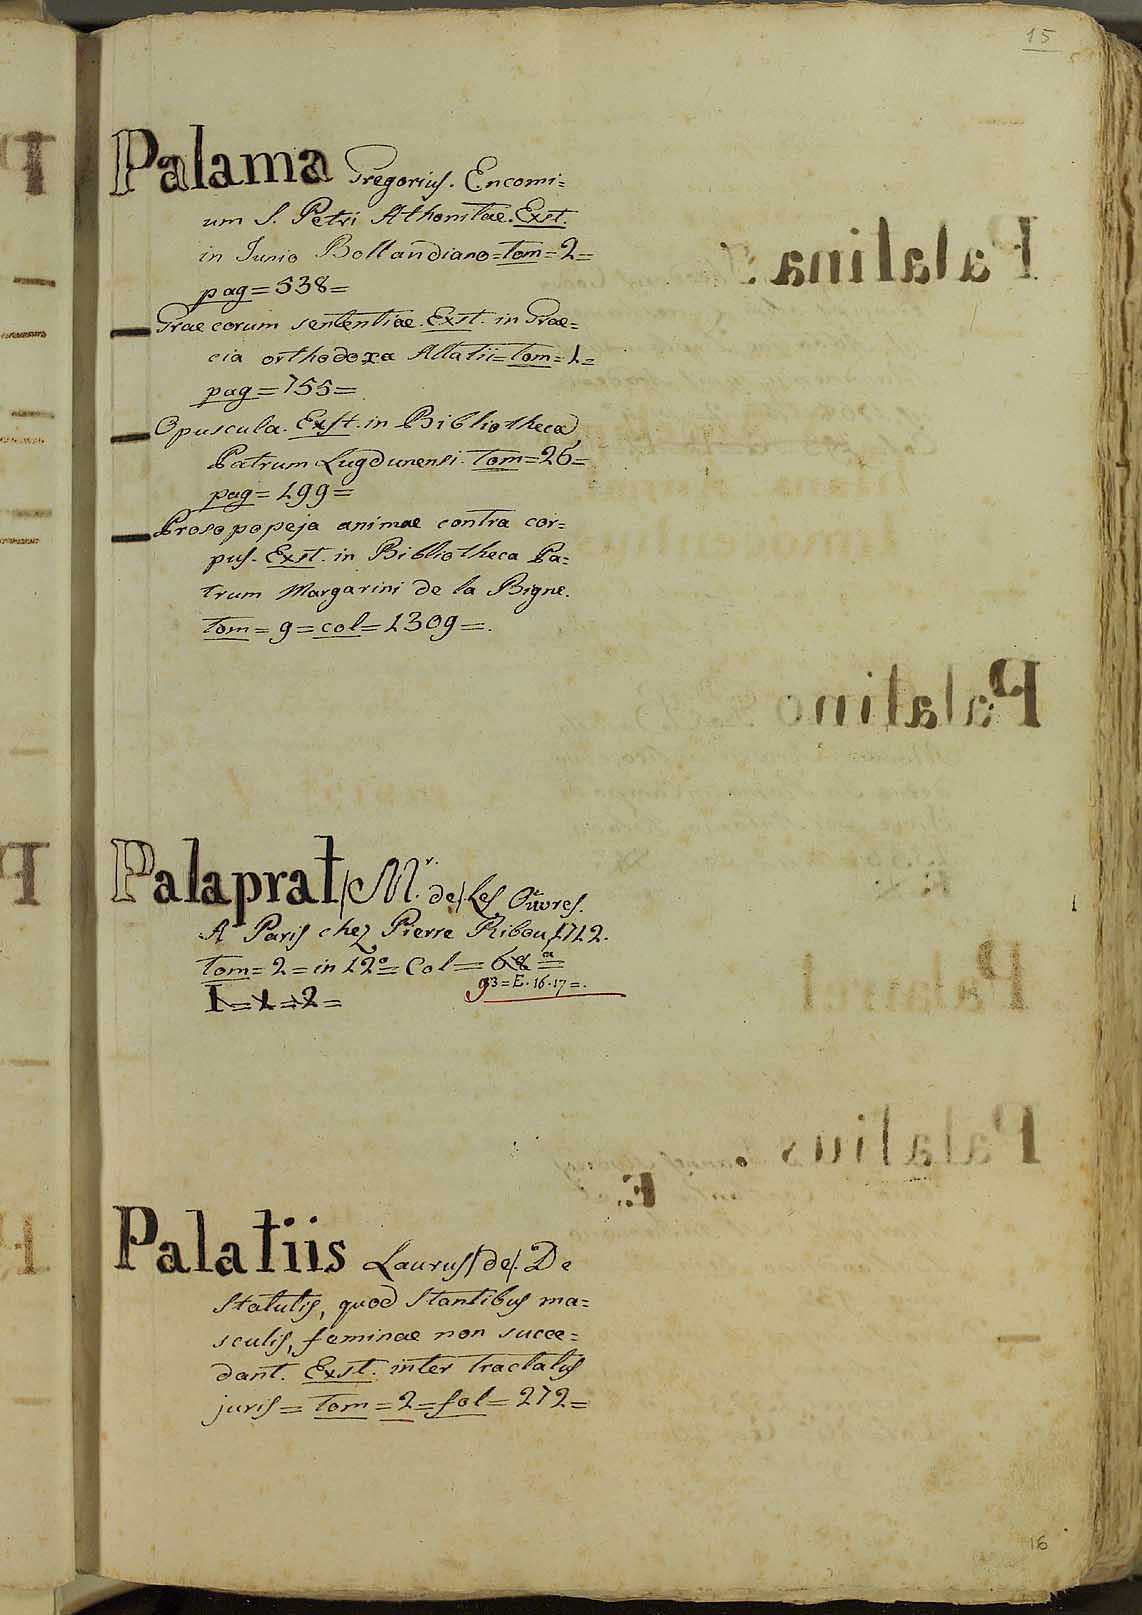 15
Palama Gregorius. Encomi=
um S. Petri Athonitae. Exst.
in Junio Bollandiano=tom=2=
pag=538=
Graecorum sententiae. Exst. in Grae=
cia orthodoxa Allatii=tom=1=
pag=755=
Opuscula. Exst. in Bibliotheca
Patrum Lugdunensi. Tom=26=
pag=199=
Prosopopeja animae contra cor=
pus. Exst. in Bibliotheca Pa=
trum Margarini de la Bigne.
Tom=9=col=1309=.
Palaprat (Mr. de). Les Œuvres.
A Paris chez Pierre Ribou 1712.
Tom=2=in 12°=Col=68 a=
93=E.16.17=.
I=1=2=
Palatiis Laurus (de). De
Statutis, quod stantibus ma=
sculis, feminae non succe=
dant. Exst. inter tractatus
juris=Tom=2=fol=272=
16